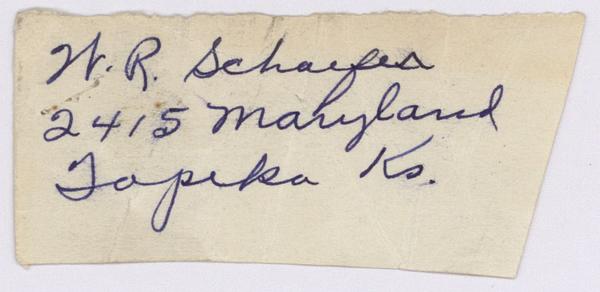 W. R. Schaefer
2415 Maryland
Topeka Ks.